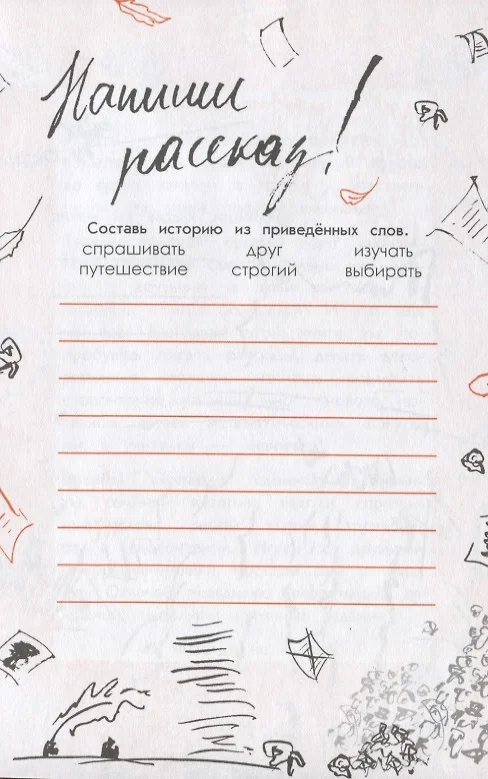 Напиши
рассказ!
Составь историю из приведённых слов.
спрашивать друг изучать
путешествие строгий выбирать